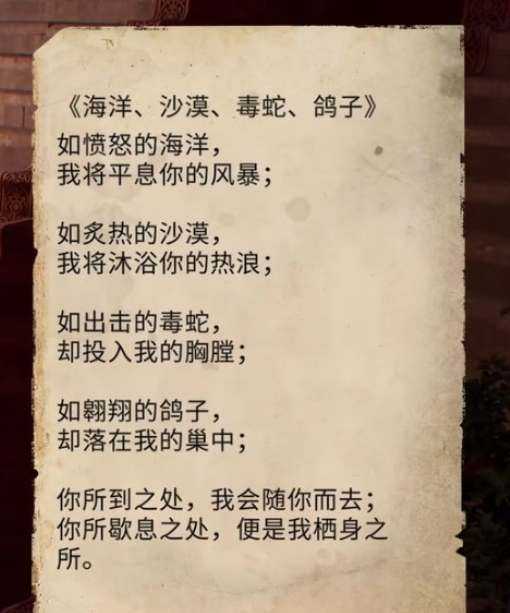 《海洋、沙漠、毒蛇、鸽子》
如愤怒的海洋，
我将平息你的风暴；
如炙热的沙漠，
我将沐浴你的热浪；
如出击的毒蛇，
却投入我的胸膛；
如翱翔的鸽子，
却落在我的巢中；
你所到之处，我会随你而去；
你所歇息之处，便是我栖身之
所。